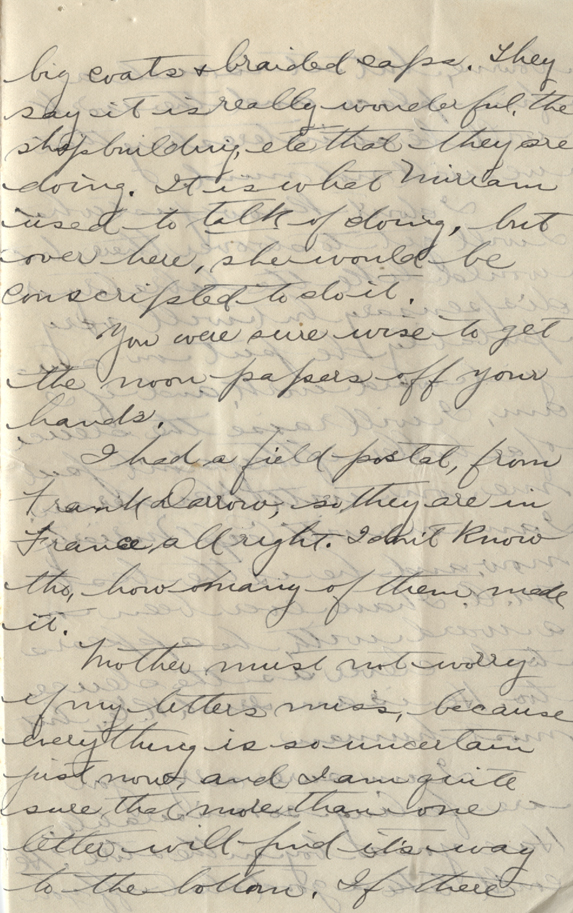 big coats & braided caps. They
say it is really wonderful, the
shopbuilding, etc that they are
doing. It is what Miriam
used to talk of doing, but
over here, she would be
conscripted to do it.
You were sure wise to get
the noon papers off your
hands.
I had a field postal, from
Frank Darrow, so they are in
France, all right. I don't know
tho, how many of them made
it.
Mother must not worry
if my letters miss, because
everything is so uncertain
just now, and I am quite
sure that more than one
letter will find its way
to the bottom. If there